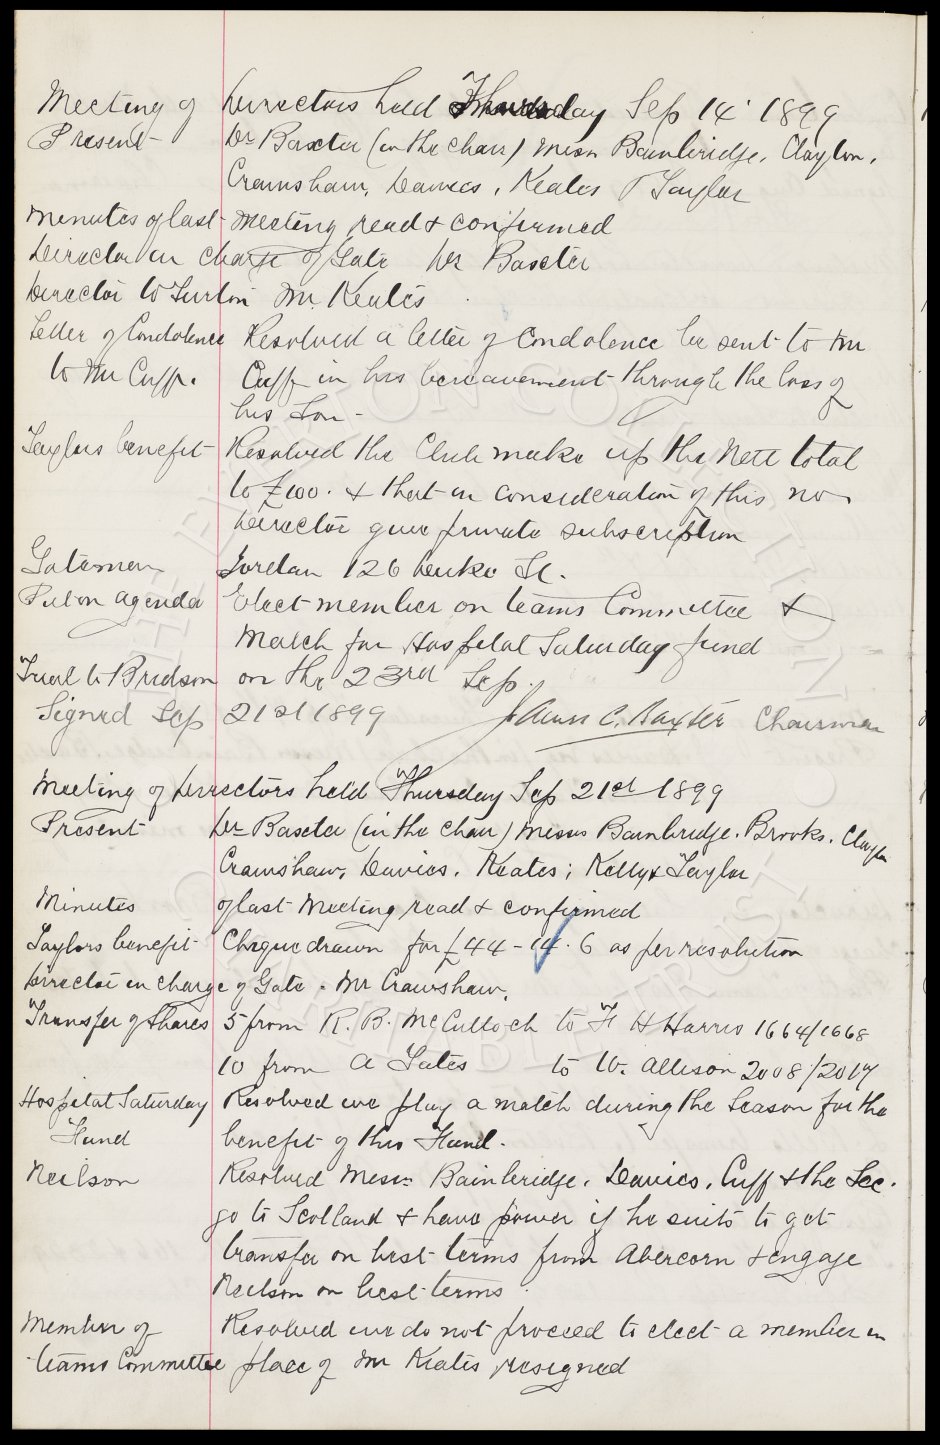 Meeting of Directors held Thursday Sep 14 1899
Present Dr Baxter (in the chair) Messrs Bainbridge, Clayton,
Crawshaw, Davies, Keates & Taylor
Minutes of last meeting read & confirmed
Director in charge of Gate Dr Baxter
Director to Turton Mr. Keates
Letter of Condolence Resolved a letter of Condolence be sent to Mr
to Mr Cuff. Cuff in his bereavement through the loss of
his Son -
Taylors benefit Resolved the Club make up the nett total
to £100. & that in consideration of this no
Director give private subscription
Gatemen Jordan 126 Duke St.
Put on agenda Elect member on teams Committee &
March for Hospital Saturday fund
Trial to Bridson on the 23rd Sep.
Signed Sep 21st 1899 James C. Baxter Chairman
Meeting of Directors held Thursday Sep 21st 1899
Present Dr Baxter (in the chair) Messrs Bainbridge, Brooks, Clayton
Crawshaw, Davies, Keates, Kelly & Taylor
Minutes of last Meeting read & confirmed
Taylors benefit Cheque drawn for £44-14.6 as per resolution
Director in charge of Gate. Mr Crawshaw.
Transfer of Shares 5 from R. B. McCulloch to F H Harris 1664/1668
10 from A Yates to W. Allison 2008/2017
Hospital Saturday Resolved we play a match during the Season for the
Fund benefit of this Fund.
Neilson Resolved Messrs Bainbridge, Davies, Cuff & the Sec.
go to Scotland & have power if he suits to get
transfer on best terms from Abercorn & engage
Neilson on best terms
Member of Resolved we do not proceed to elect a member in
teams Committee place of Mr Keates resigned